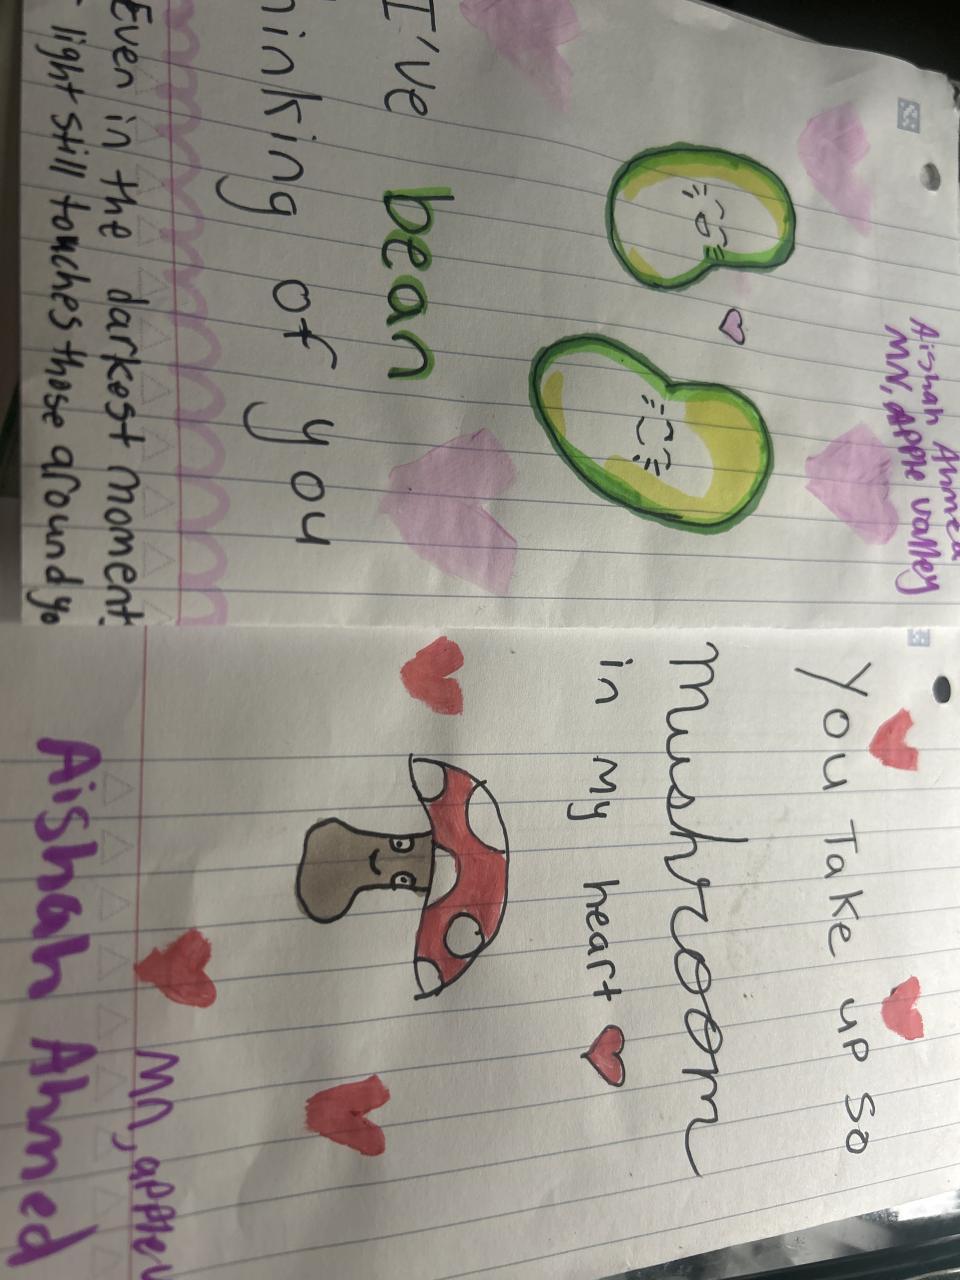 Aishah Ahmed
MN, Apple valley
I've bean
of you
Even in the darkest moment
light still touches those around
You Take up so
Mushroom
in my heart
MN, apple
Aishah Ahmed